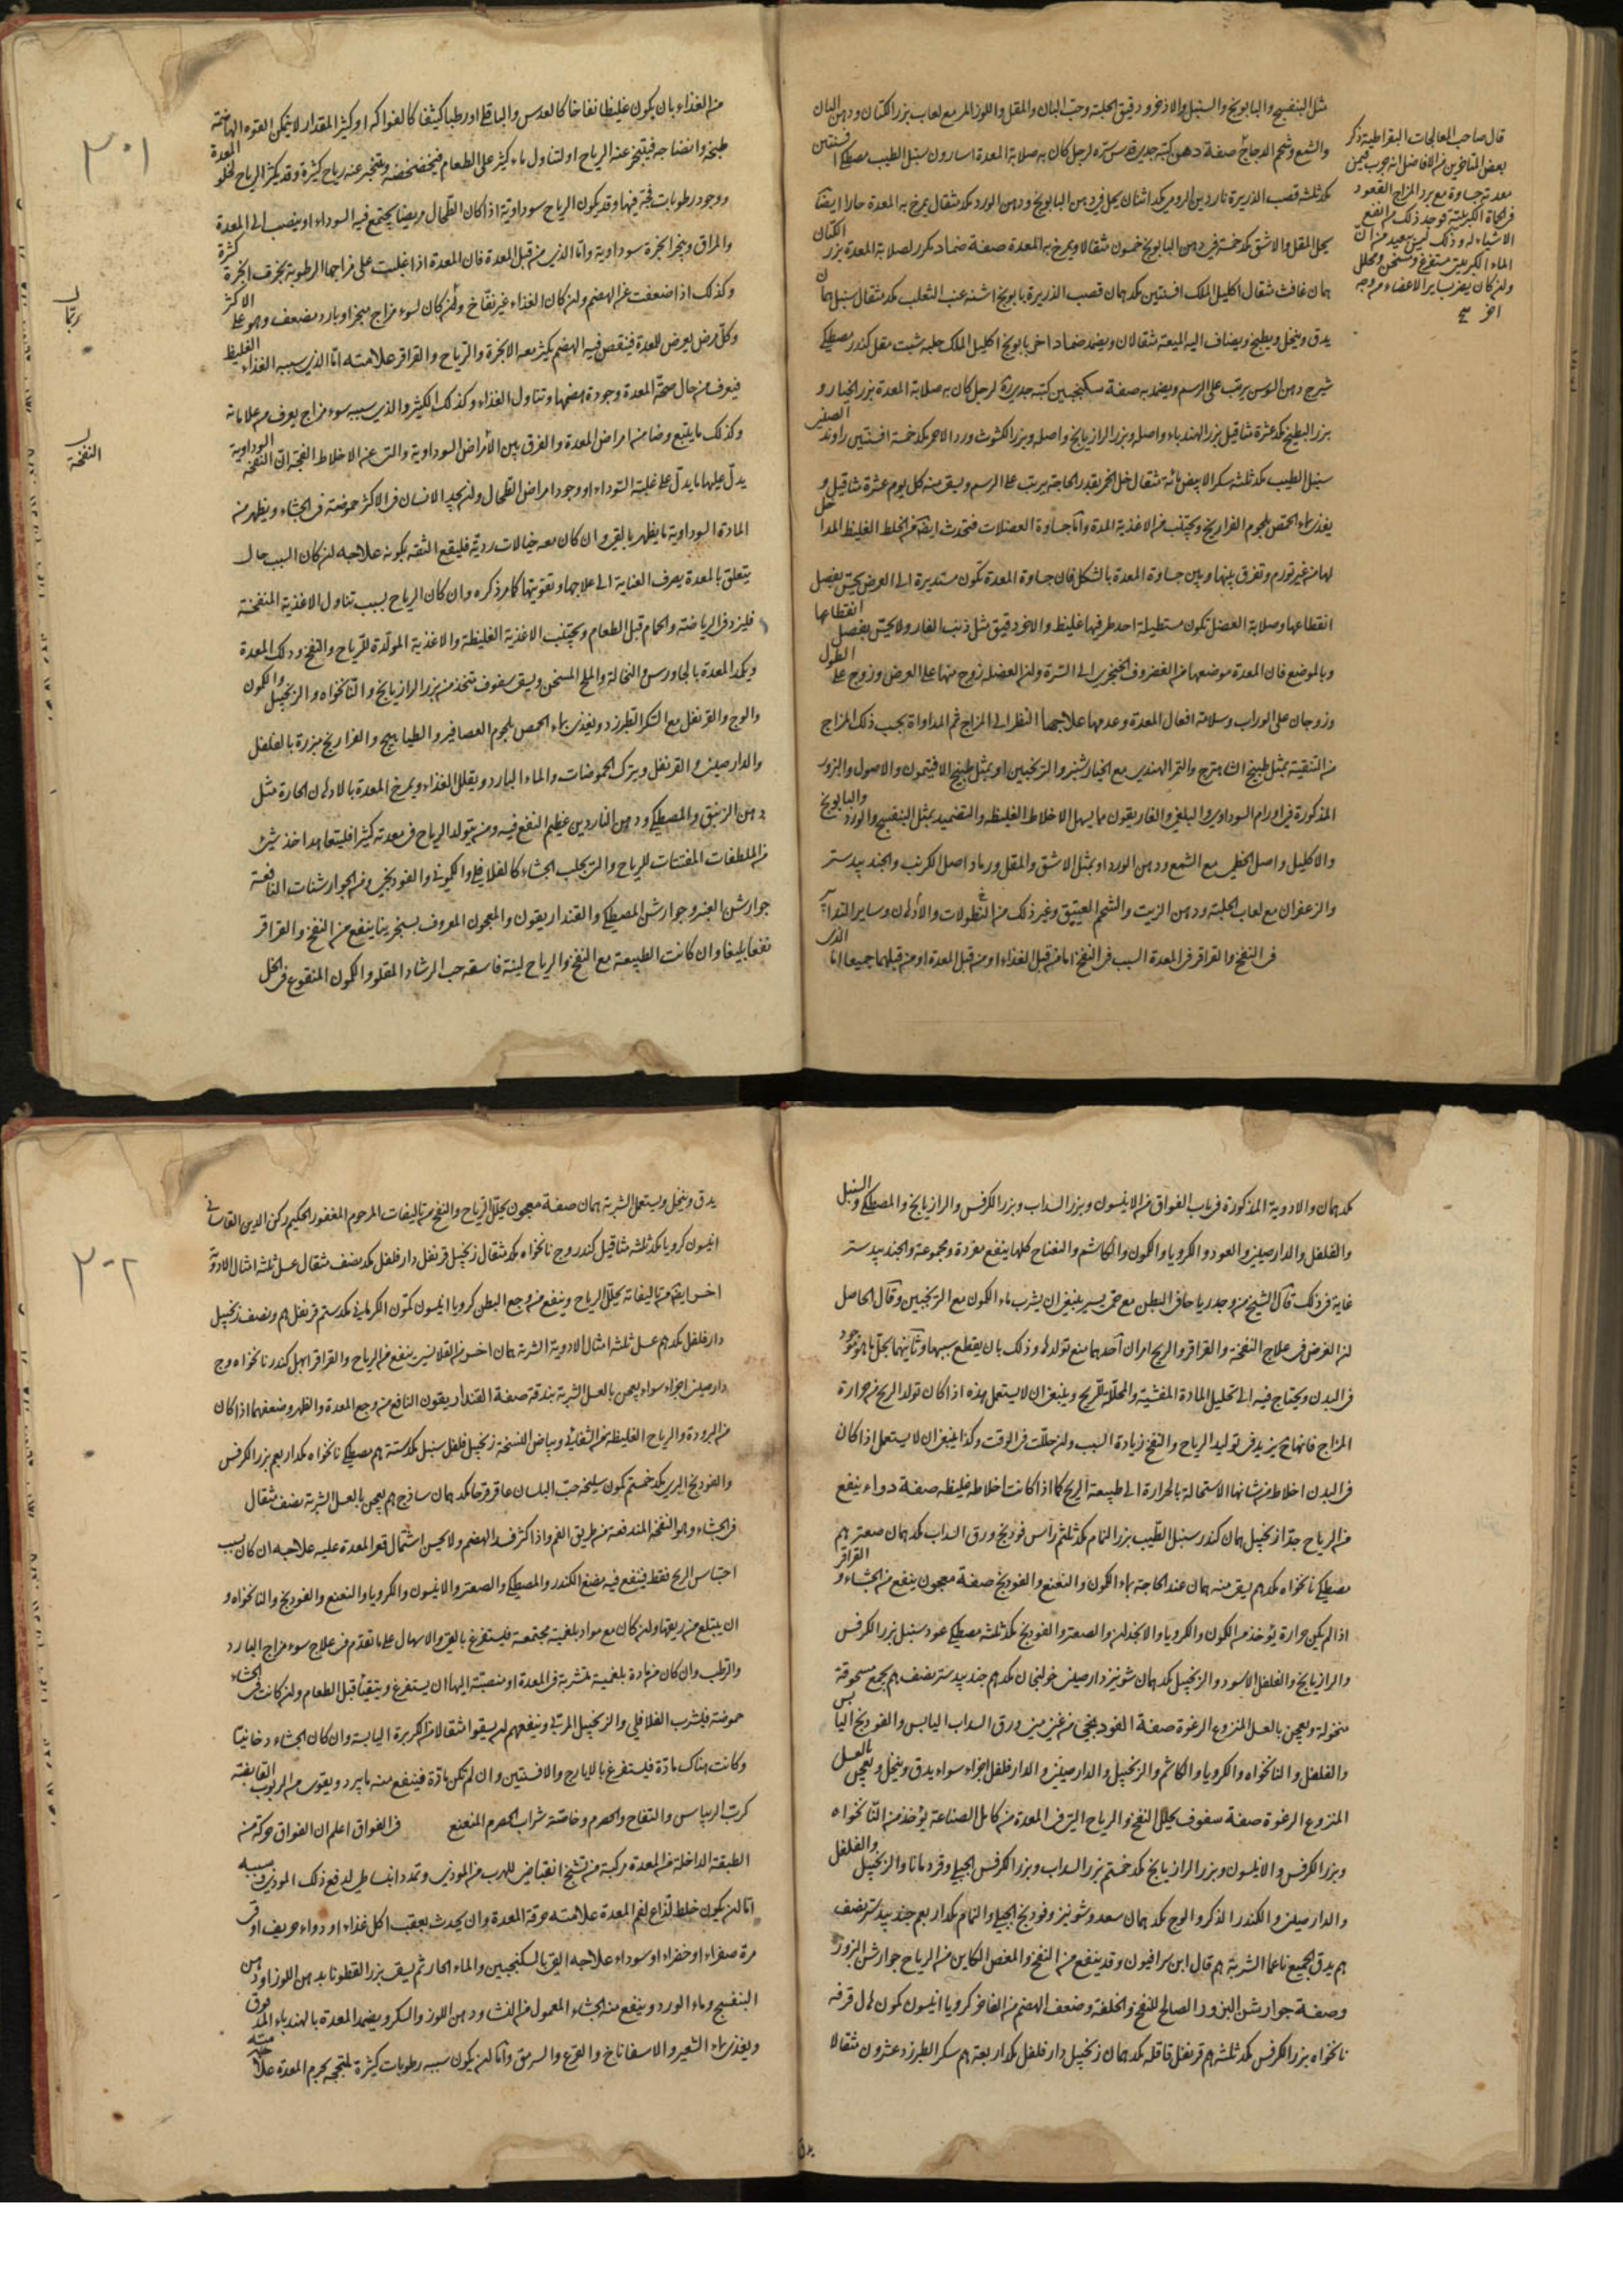 مثل البنفسج والبابونج والسنبل والاذخر ودقيق الحلبة وحب البان والمقل واللوز المر مع لعاب بزر الكتان ودهن البان
والشمع وشحم الدجاج صفة دهن كتبه جديدة لرجل كان به صلابة المعدة اسارون سنبل الطيب مصطكى افسنتين
مكد ثلثة قصب الذريرة ناردين لادرومى مكد اثنان يحل فى دهن البابونج ودهن الورد مكد مثقال يمرخ به المعدة حارا ايضا
يحل المقل والاشق مكد خمسة فى دهن البابونج خمسون مثقالا ويمرخ به المعدة صفة ضماد مكرر لصلابة المعدة بزر الكتان
همان غافث مثقال اكليل الملك افسنتين مكد همان قصب الذريرة بابونج اشنه عنب الثعلب مكد مثقال سنبل همان
يدق وينخل ويطبخ ويضاف اليه الميعة مثقالان ويضمد ضماد اخر بابونج اكليل الملك حلبه شبت مقل كندر مصطكى
شيرج دهن السوسن يرتب على الرسم ويضمد به صفة سكنجبين كتبه جديدة لرجل كان به صلابة المعدة بزر الخيار و
بزر البطيخ مكد عشرة مثاقيل بزر الهندباء واصله وبزر الرازيانج واصله وبزر الكشوث ورد الاحمر مكد خمسة افسنتين راوند الصينى
سنبل الطيب مكد ثلثة سكر الابيض مائة مثقال خل الخمر بقدر الحاجة يرتب على الرسم ويسقى منه كل يوم عشرة مثاقيل و
يغذى بماء الحمص بلحوم الفراريج ويجتنب من الاغذية المدة واما جساوة العضلات فتحدث ايضا من الخلط الغليظ المداخل
لها من غير تورم وتفرق بينها وبين جساوة المعدة بالشكل فان جساوة المعدة تكون مستديرة الى العرض يحس بفصل
انقطاعها وصلابة العضل تكون مستطيلة احد طرفيها غليظ والاخر دقيق مثل ذنب الفار ولا يحس بفصل انقطاعها
وبالموضع فان المعدة موضعها من الغضروف الخنجرى الى السرة ولان العضله زوج منها على العرض وزوج على الطول
وزوجان على الوراب وسلامة افعال المعدة وعدمها علاجها النظر الى المزاج ثم المداواة بحسب ذلك المزاج
من التنقية بمثل طبيخ الشاهترج والتمر الهندى مع الخيار شنبر والترنجبين او بمثل طبيخ الافتيمون والاصول والبزور
المذكورة فى اورام السوداوى والبلغمى والغاريقون مما يسهل الاخلاط الغليظه والتضميد بمثل البنفسج والورد والبابونج
والاكليل واصل الخطمى مع الشمع ودهن الورد او بمثل الاشق والمقل ورماد اصل الكرنب والجندبيدستر
والزعفران مع لعاب الحلبة ودهن الزيت والشحم العتيق وغير ذلك من النطولات والادهان وساير التدابير
فى النفخ والقراقر فى المعدة السبب فى النفخ اما من قبل الغذاء او من قبل المعدة او من قبلهما جميعا اما الذى
قال صاحب المعالجات البقراطية ذكر
بعض المتاخرين من الافاضل انه جرب فيمن
معدته جساوة مع برد المزاج القعود
فى الحماة الكبريتية فوجد ذلك من انفع
الاشياء له وذلك ليس ببعيد من ان
الماء الكبريتى مستفرغ ومسخن ومحلل
وان كان يضر بساير الاعضاء من وجه
اخر
٣٠١
من الغذاء بان يكون غليظا نفاخا كالعدس والباقلى او رطبا كثيفا كالفواكه او كثير المقدار لا يتمكن القوة الهاضمة
طبخه وانضاجه فيتبخر عنه الرياح او لتناول ماء كثير على الطعام فيخضخضه ويتبخر عنه رياح كثيرة وقد يكثر الرياح لخلو المعدة
ووجود رطوبات فجة فيها وقد يكون الرياح سوداوية اذا كان الطحال مريضا يجتمع فيه السوداء او ينصب الى المعدة
والمراق وبخر ابخرة سوداوية واما الذى من قبل المعدة فان المعدة اذا غلبت على مزاجها الرطوبة بخرت ابخرة كثرة
وكذلك اذا ضعفت عن الهضم وان كان الغذاء غير نفاخ وان كان لسوء مزاج مبخر او بارد مضعف وهو على الاكثر
وكل مرض يعرض للمعدة فينقص فيه الهضم يكثر معه الابخرة والرياح والقراقر علامته اما الذى سببه الغذاء الغليظ
فيعرف من حال صحة المعدة وجودة هضمها وتناول الغذاء وكذلك الكثير والذى سببه سوء مزاج يعرف من علاماته
وكذلك ما يتبع وضا من امراض المعدة والفرق بين الامراض السوداوية والتى عن الاخلاط الفجة ان النفخة السوداوية
يدل عليها ما يدل على غلبة السوداء او وجود امراض الطحال وان يجد الانسان فى الاكثر حموضة فى الجشاء ويظهر من
المادة السوداوية ما يظهر بالقى وان كان معه خيالات ردية فليقع الثقة بكونه علاجه ان كان السبب حال
يتعلق بالمعدة يصرف العناية الى علاجها وتقويتها كما مر ذكره وان كان الرياح بسبب تناول الاغذية المنفخة
فليزد فى الرياضة والحمام قبل الطعام ويجتنب الاغذية الغليظة والاغذية المولدة للرياح والنفخ ودلك المعدة
ويكمد المعدة بالجاورس والنخالة والملح المسخن ويسقى سفوف متخذ من بزر الرازيانج والنانخواه والزنجبيل والكمون
والوج والقرنفل مع السكر الطبرزد ويغذى بماء الحمص بلحوم العصافير والطياهيج والفراريج مبزرة بالفلفل
والدارصينى والقرنفل ويترك الحموضات والماء البارد ويقلل الغذاء ويمرخ المعدة بالادهان الحارة مثل
دهن الزنبق والمصطكى ودهن الناردين عظيم النفع فيه ومن يتولد الرياح فى معدته كثيرا فليتعاهد اخذ شىء
من الملطفات المفتتات للرياح والتى تجلب الجشاء كالفلافلى والكمونى والفودنجى ومن الجوارشنات النافعة
جوارشن العنبر وجوارشن المصطكى والقنداريقون والمعجون المعروف بسنجرينا ينفع من النفخ والقراقر
نفعا بليغا وان كانت الطبيعة مع النفخ والرياح لينة فاسقه حب الرشاد المقلو والكمون المنقوع فى الخل
رياح
النفخة
مكد همان والادوية المذكورة فى باب الفواق من الانيسون وبزر السداب وبزر الكرفس والرازيانج والمصطكى والسنبل
والفلفل والدارصينى والعود والكرويا والكمون والكاشم والنعناع كلها ينفع مفردة ومجموعة والجندبيدستر
غاية فى ذلك قال الشيخ من وجد رياحا فى البطن مع حمى يسير ينبغى ان يشرب ماء الكمون مع الترنجبين وقال الحاصل
ان الغرض فى علاج النفخة والقراقر والريح امران احدهما منع تولدها وذلك بان يقطع سببها وثانيهما تحليل ما هو موجود
فى البدن ويحتاج فيه الى تحليل المادة المفشية والمحللة للريح وينبغى ان لا يستعمل هذه اذا كان تولد الريح من حرارة
المزاج فانها تزيد فى توليد الرياح والنفخ زيادة السبب وان حللت فى الوقت وكذا ينبغى ان لا يستعمل اذا كان
فى البدن اخلاط من شانها الاستحالة بالحرارة الى طبيعة الريح كما اذا كانت اخلاطه غليظه صفة دواء ينفع
من الرياح جدا زنجبيل همان كندر سنبل الطيب بزر النمام مكد ثلثة دراس فودنج ورق السداب مكد همان صعتر هم
مصطكى نانخواه مكدهم يسقى منه همان عند الحاجة بماء الكمون والنعنع والفودنج صفة معجون ينفع من الجشاء والقراقر
اذا لم يكن حرارة يؤخذ من الكمون والكرويا والانجدان والصعتر والفودنج مكد ثلثة مصطكى عود سنبل بزر الكرفس
والرازيانج والفلفل الاسود والزنجبيل مكد همان شونيز دارصينى خولنجان مكدهم جندبيدستر نصف هم يجمع مسحوقة
منخولة ويعجن بالعسل المنزوع الرغوة صفة الفودنجى من غير من ورق السداب اليابس والفودنج اليابس
والفلفل والنانخواه والكرويا والكاشم والزنجبيل والدارصينى والدارفلفل اجزاء سواء يدق وينخل ويعجن بالعسل
المنزوع الرغوة صفة سفوف يحلل النفخ والرياح التى فى المعدة من كامل الصناعة يؤخذ من النانخواه
وبزر الكرفس والانيسون وبزر الرازيانج مكد خمستم بزر السداب وبزر الكرفس الجبلى وقردمانا والزنجبيل والفلفل
والدارصينى والكندر الذكر والوج مكد همان سعد وشونيز وفودنج الجبلى والنمام مكد اربعم جندبيدستر نصف
هم يدق الجميع ناعما الشربة هم قال ابن سرافيون وقد ينفع من النفخ والمغص الكاين من الرياح جوارشن البزور
وصفة جوارشن البزور الصالح للنفخ والخلفة وضعف الهضم من الفاخر كرويا انيسون كمون هال قرفه
نانخواه بزر الكرفس مكد ثلثهم قرنفل قاقله مكد همان زنجبيل دارفلفل مكد اربعة هم سكر الطبرزد عشرون مثقالا
يدق
٣٠٢
يدق وينخل ويستعمل الشربة همان صفة معجون يحلل الرياح والنفخ من تاليفات المرحوم المغفور الحكيم ركن الدين القاسانى
انيسون كرويا مكد ثلثة مثاقيل كندر وج نانخواه مكد مثقال زنجبيل قرنفل دارفلفل مكد نصف مثقال عسل ثلثة امثال الادوية
اخر ايضا من تاليفاته يحلل الرياح وينفع من وجع البطن كرويا انيسون كمون الكرمانى مكد ستم قرنفل هم ونصف زنجبيل
دارفلفل مكدهم عسل ثلثة امثال الادوية الشربة همان اخر من القلانسى ينفع من الرياح والقراقر ابهل كندر نانخواه وج
دارصينى اجزاء سواء يعجن بالعسل الشربة بندقة صفة القنداريقون النافع من وجع المعدة والظهر وضعفهما اذا كان
من البرودة والرياح الغليظه من الشفائى وبياض النسخة زنجبيل فلفل سنبل مكد ستة هم مصطكى نانخواه مكد اربعم بزر الكرفس
والفودنج البرى مكد خمستم كمون سليخه حب البلسان عاقرقرحا مكد همان ساذج هم يعجن بالعسل الشربة نصف مثقال
فى الجشاء وهو النفخة المندفعة من طريق الفم واذا كثر فسد الهضم ولا يحسن اشتمال قعر المعدة عليه علاجه ان كان بسبب
احتباس الريح فقط فينفع فيه مضغ الكندر والمصطكى والصعتر والانيسون والكرويا والنعنع والفودنج والنانخواه و
ان يبتلع من ريقها وان كان مع مواد بلغمية مجتمعة فليستفرغ بالقى والاسهال على ما تقدم فى علاج سوء مزاج البارد
والرطب وان كان من مادة بلغمية متشربة فى المعدة او منصبة اليها ان يستفرغ ويتقيأ قبل الطعام وان كانت فى الجشاء
حموضة فليشرب الفلافلى والزنجبيل المربى وينفعهم ان يسقوا مثقالا من الكزبرة اليابسة وان كان الجشاء دخانيا
وكانت هناك مادة فليستفرغ بالايارج والافسنتين وان لم تكن مادة فينفع منه ما يبرد ويقوى من الربوب القابضة
كرب الريباس والتفاح والحصرم وخاصة شراب الحصرم المنعنع فى الفواق اعلم ان الفواق حركة من
الطبقة الداخلة من المعدة مركبة من تشنج انقباضى للهرب من الموذى وتمدد انبساطى لدفع ذلك الموذى وسببه
اما ان يكون خلط لذاع لفم المعدة علامته حرقة المعدة وان يحدث بعقب اكل غذاء او دواء حريف او قى
مرة صفراء او خضراء او سوداء علاجه القى بالسكنجبين والماء الحار ثم يسقى بزر القطونا بدهن اللوز او دهن
البنفسج وماء الورد وينفع منه الجشاء المعمول من النشا ودهن اللوز والسكر ويضمد المعدة بالهندباء المدقوق
ويغذى بماء الشعير والاسفاناخ والقرع والسرمق واما ان يكون سببه رطوبات كثيرة ملتحجة بجرم المعدة علامته